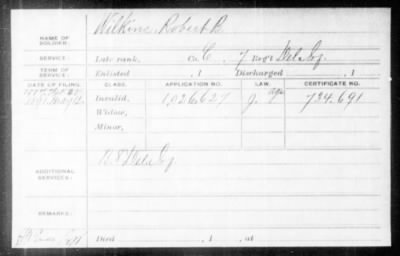 NAME OF SOLDIER: Wilkins, Robert B
SERVICE: Late rank, Co. C, 7 Reg't Del. Inf.
TERM OF SERVICE: Enlisted , 1 Discharged , 1
DATE OF FILING. CLASS. APPLICATION NO. LAW. CERTIFICATE NO.
Invalid, 1,026,627 724,691
Widow,
Minor,
ADDITIONAL SERVICES: Del
REMARKS:
Died , 1 , at